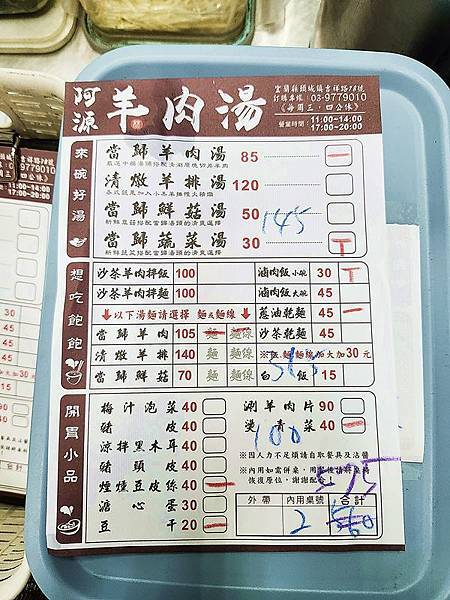 阿源 羊肉湯
宜蘭縣頭城鎮吉祥路78號
訂購專線:03-9779010
《每周三、四公休》
營業時間:11:00~14:00
17:00~20:00
來碗好湯
當歸羊肉湯 85
清燉羊排湯 120
當歸鮮菇湯 50
當歸蔬菜湯 30
145
想吃飽飽
沙茶羊肉拌飯 100 滷肉飯小碗 30
沙茶羊肉拌麵 100 滷肉飯大碗 45
以下湯麵請選擇 麵或麵線 蔥油乾麵 45
當歸羊肉 105 麵 麵線 沙茶乾麵 45
清燉羊排 140 麵 麵線 ※飯.麵麵線加大加30元
當歸鮮菇 70 麵 麵線 白飯 15
開胃小品
梅汁泡菜 40 涮羊肉片 90
豬皮 40 燙青菜 40
涼拌黑木耳 40 ※因人力不足煩請自取餐具及沾醬
豬頭皮 40 ※內用如需併桌,用
恢復原位,謝謝配合
煙燻豆皮絲 40
溏心蛋 30
豆干 20
100
外帶 內用桌號 合計
2